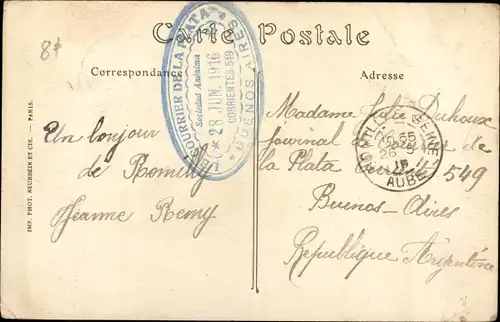 8f
Carte Postale
Correspondance
Adresse
LE COURRIER DE LA PLATA
Sociedad Anónima
* 28 JUN. 1916 *
CORRIENTES 549
BUENOS AIRES
Un bonjour
de Romilly
Jeanne Remy
Madame Julie Duhoux
Journal Courrier de
la Plata 549
Buenos-Aires
Republique Argentine
AUBE
IMP. PHOT. NEURDEIN ET CIE. - PARIS.